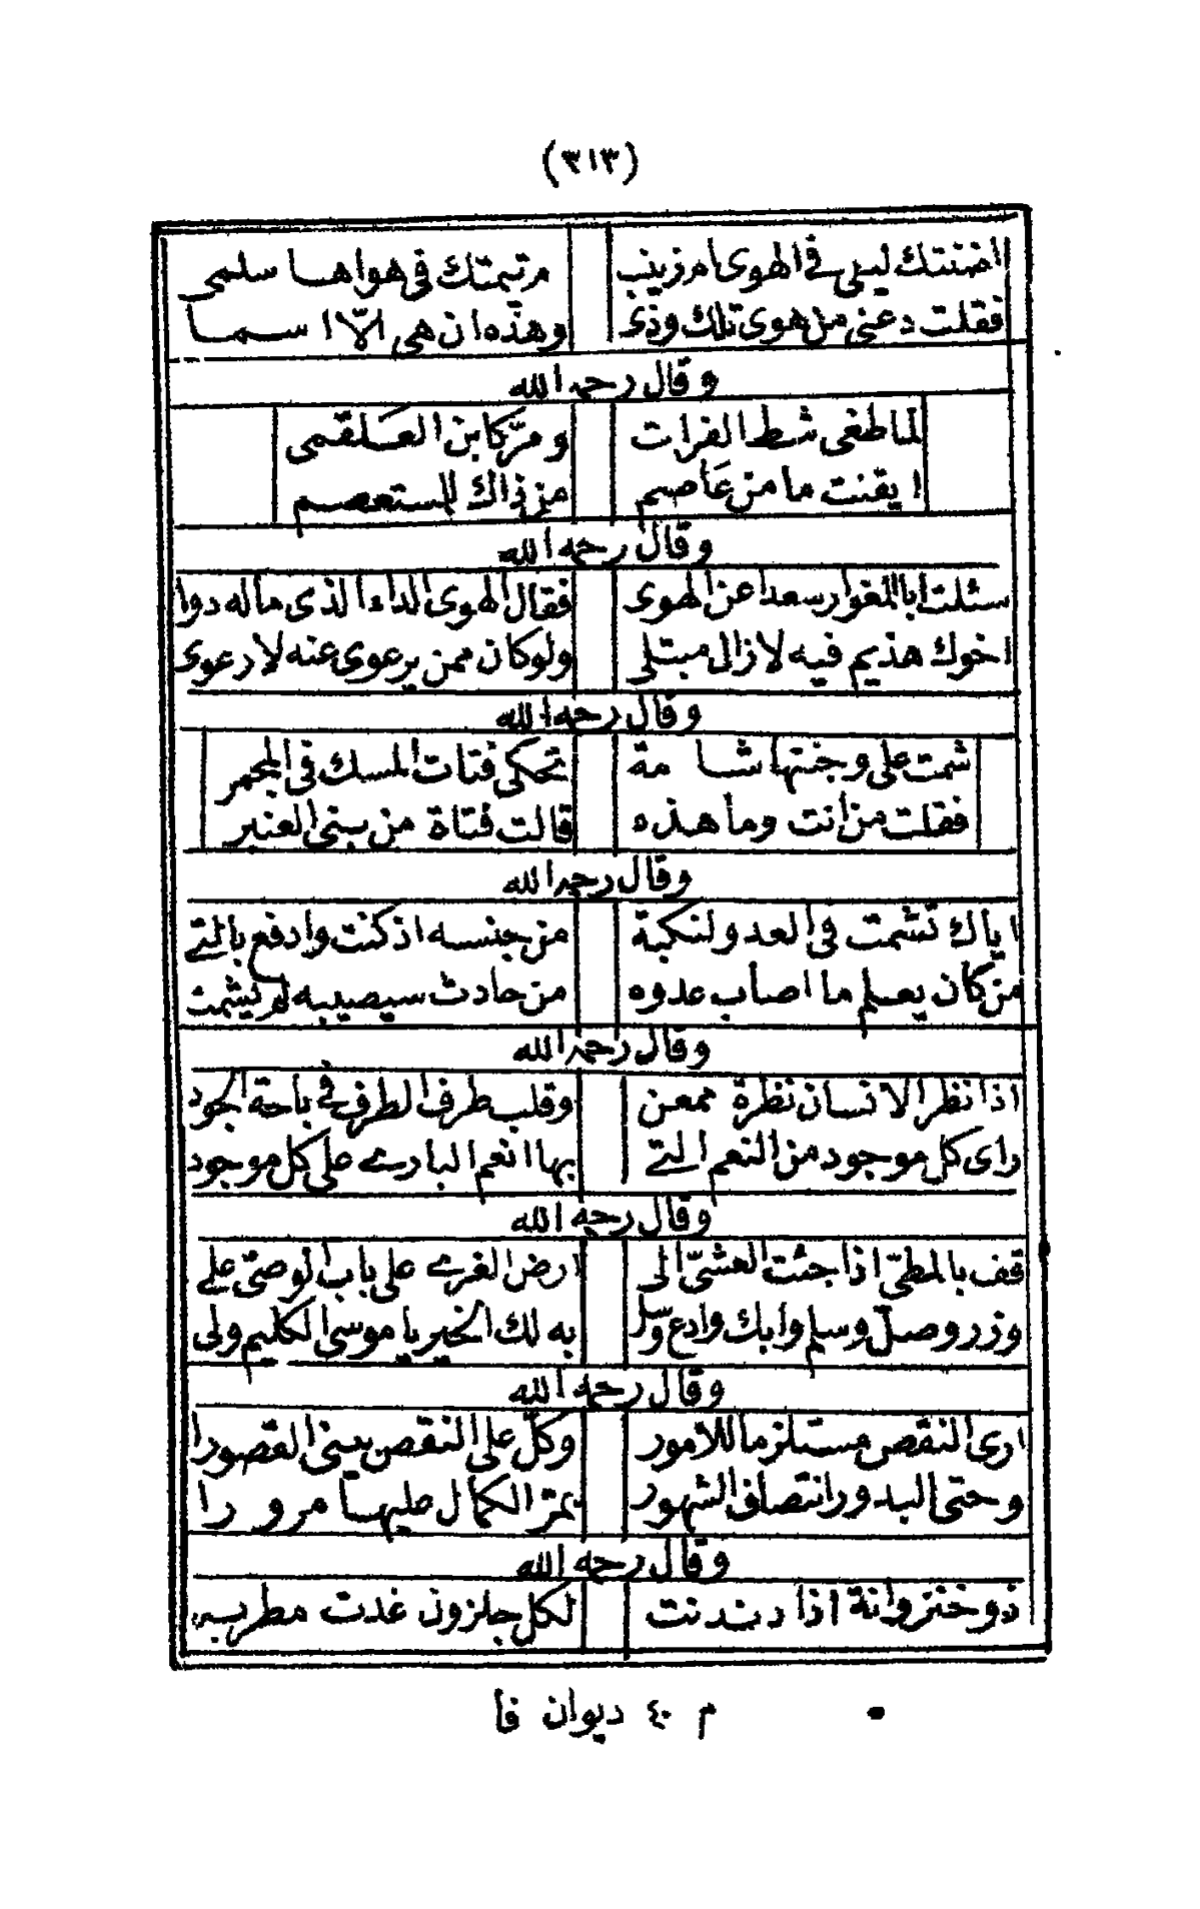 (٣١٣)
اضنتك ليلى في الهوى ام زينب ام تيمتك في هواها سلمى
فقلت دعني من هوى تلك وذي وهذه ان هي الّا اسما
وقال رحمه الله
لما طغى شط الفرات ومرّ كابن العلقمى
ايقنت ما من عَاصم من ذاك المستعصم
وقال رحمه الله
سئلت ابا المغوار سعدا عن الهوى فقال الهوى الداء الذى ماله دوا
اخوك هذيم فيه لا زال مبتلى ولو كان ممن يرعوى عنه لارعوى
وقال رحمه الله
شمت على وجنتها شامة تحكى فتات المسك في المجمر
فقلت من انت وما هذه قالت فتاة من بنى العنبر
وقال رحمه الله
اياك تشمت في العدو لنكبة من جنسه اذ كنت وادفع بالتي
من كان يعلم ما اصاب عدوه من حادث سيصيبه لم يشمت
وقال رحمه الله
اذا نظر الانسان نظرة ممعن وقلب طرف الطرف في باحة الجود
راى كل موجود من النعم التي بها انعم البارے على كل موجود
وقال رحمه الله
قف بالمطىّ اذا جئت العشىّ الى ارض الغرے على باب الوصىّ علے
وزر وصلّ وسلم وابك وادع وسل به لك الخير يا موسى الكليم ولى
وقال رحمه الله
ارى النقص مستلزما للامور وكلّ على النقص يبنى القصورا
وحتى البدور انتصاف الشهور يمرّ الكمال عليها مرورا
وقال رحمه الله
ذو خنزوانة اذا دندنت لكل حلزون غدت مطربه
م ٤٠ ديوان فا